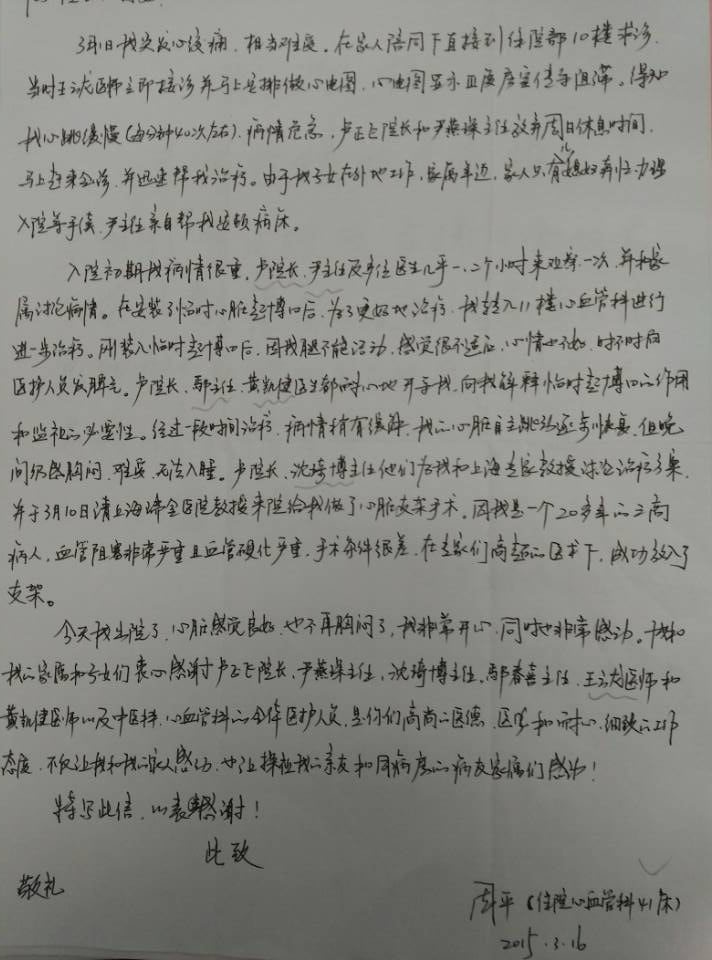 3月1日我突发心绞痛，相当难受。在家人陪同下直接到住院部10楼求诊，
当时王斌医师立即接诊并马上安排做心电图，心电图显示Ⅲ度房室传导阻滞。得知
我心跳缓慢（每分钟40次左右），病情危急，卢正飞院长和尹燕琛主任放弃周日休息时间，
马上赶来会诊，并迅速帮我治疗。由于我子女在外地工作，家属年迈，家人只有儿媳妇奔忙办理
入院等手续，尹主任亲自帮我安顿病床。
入院初期我病情很重，卢院长、尹主任及床位医生几乎一、二个小时来观察一次，并和家
属讨论病情。在安装了临时心脏起博口后，为了更好地治疗，我转入11楼心血管科进行
进一步治疗。刚装入临时起博口后，因我腿不能活动，感觉很不适应，心情也不好，时不时向
医护人员发脾气。卢院长、鄢主任、黄凯健医生都耐心地开导我，向我解释临时起博口的作用
和监视的必要性。经过一段时间治疗，病情稍有缓解，我的心脏自主跳动逐步恢复，但晚
间仍感胸闷，难受，无法入睡。卢院长、沈琦博主任他们为我和上海专家教授讨论治疗方案，
并于3月10日请上海瑞金医院教授来院给我做了心脏支架手术。因我是一个20多年的三高
病人，血管阻塞非常严重且血管硬化严重，手术条件很差，在专家们高超的医术下，成功放入了
支架。
今天我出院了，心脏感觉良好，也不再胸闷了，我非常开心，同时也非常感动。我和
我的家属和子女们衷心感谢卢正飞院长、尹燕琛主任，沈琦博主任、鄢春喜主任、王斌医师和
黄凯健医师以及中医科、心血管科的全体医护人员，是你们高尚的医德、医术和耐心、细致的工作
态度，不仅让我和我的家人感动，也让探视我的亲友和同病房的病友家属们感动！
特写此信，以表感谢！
此致
敬礼
周平（住院心血管科41床）
2015.3.16